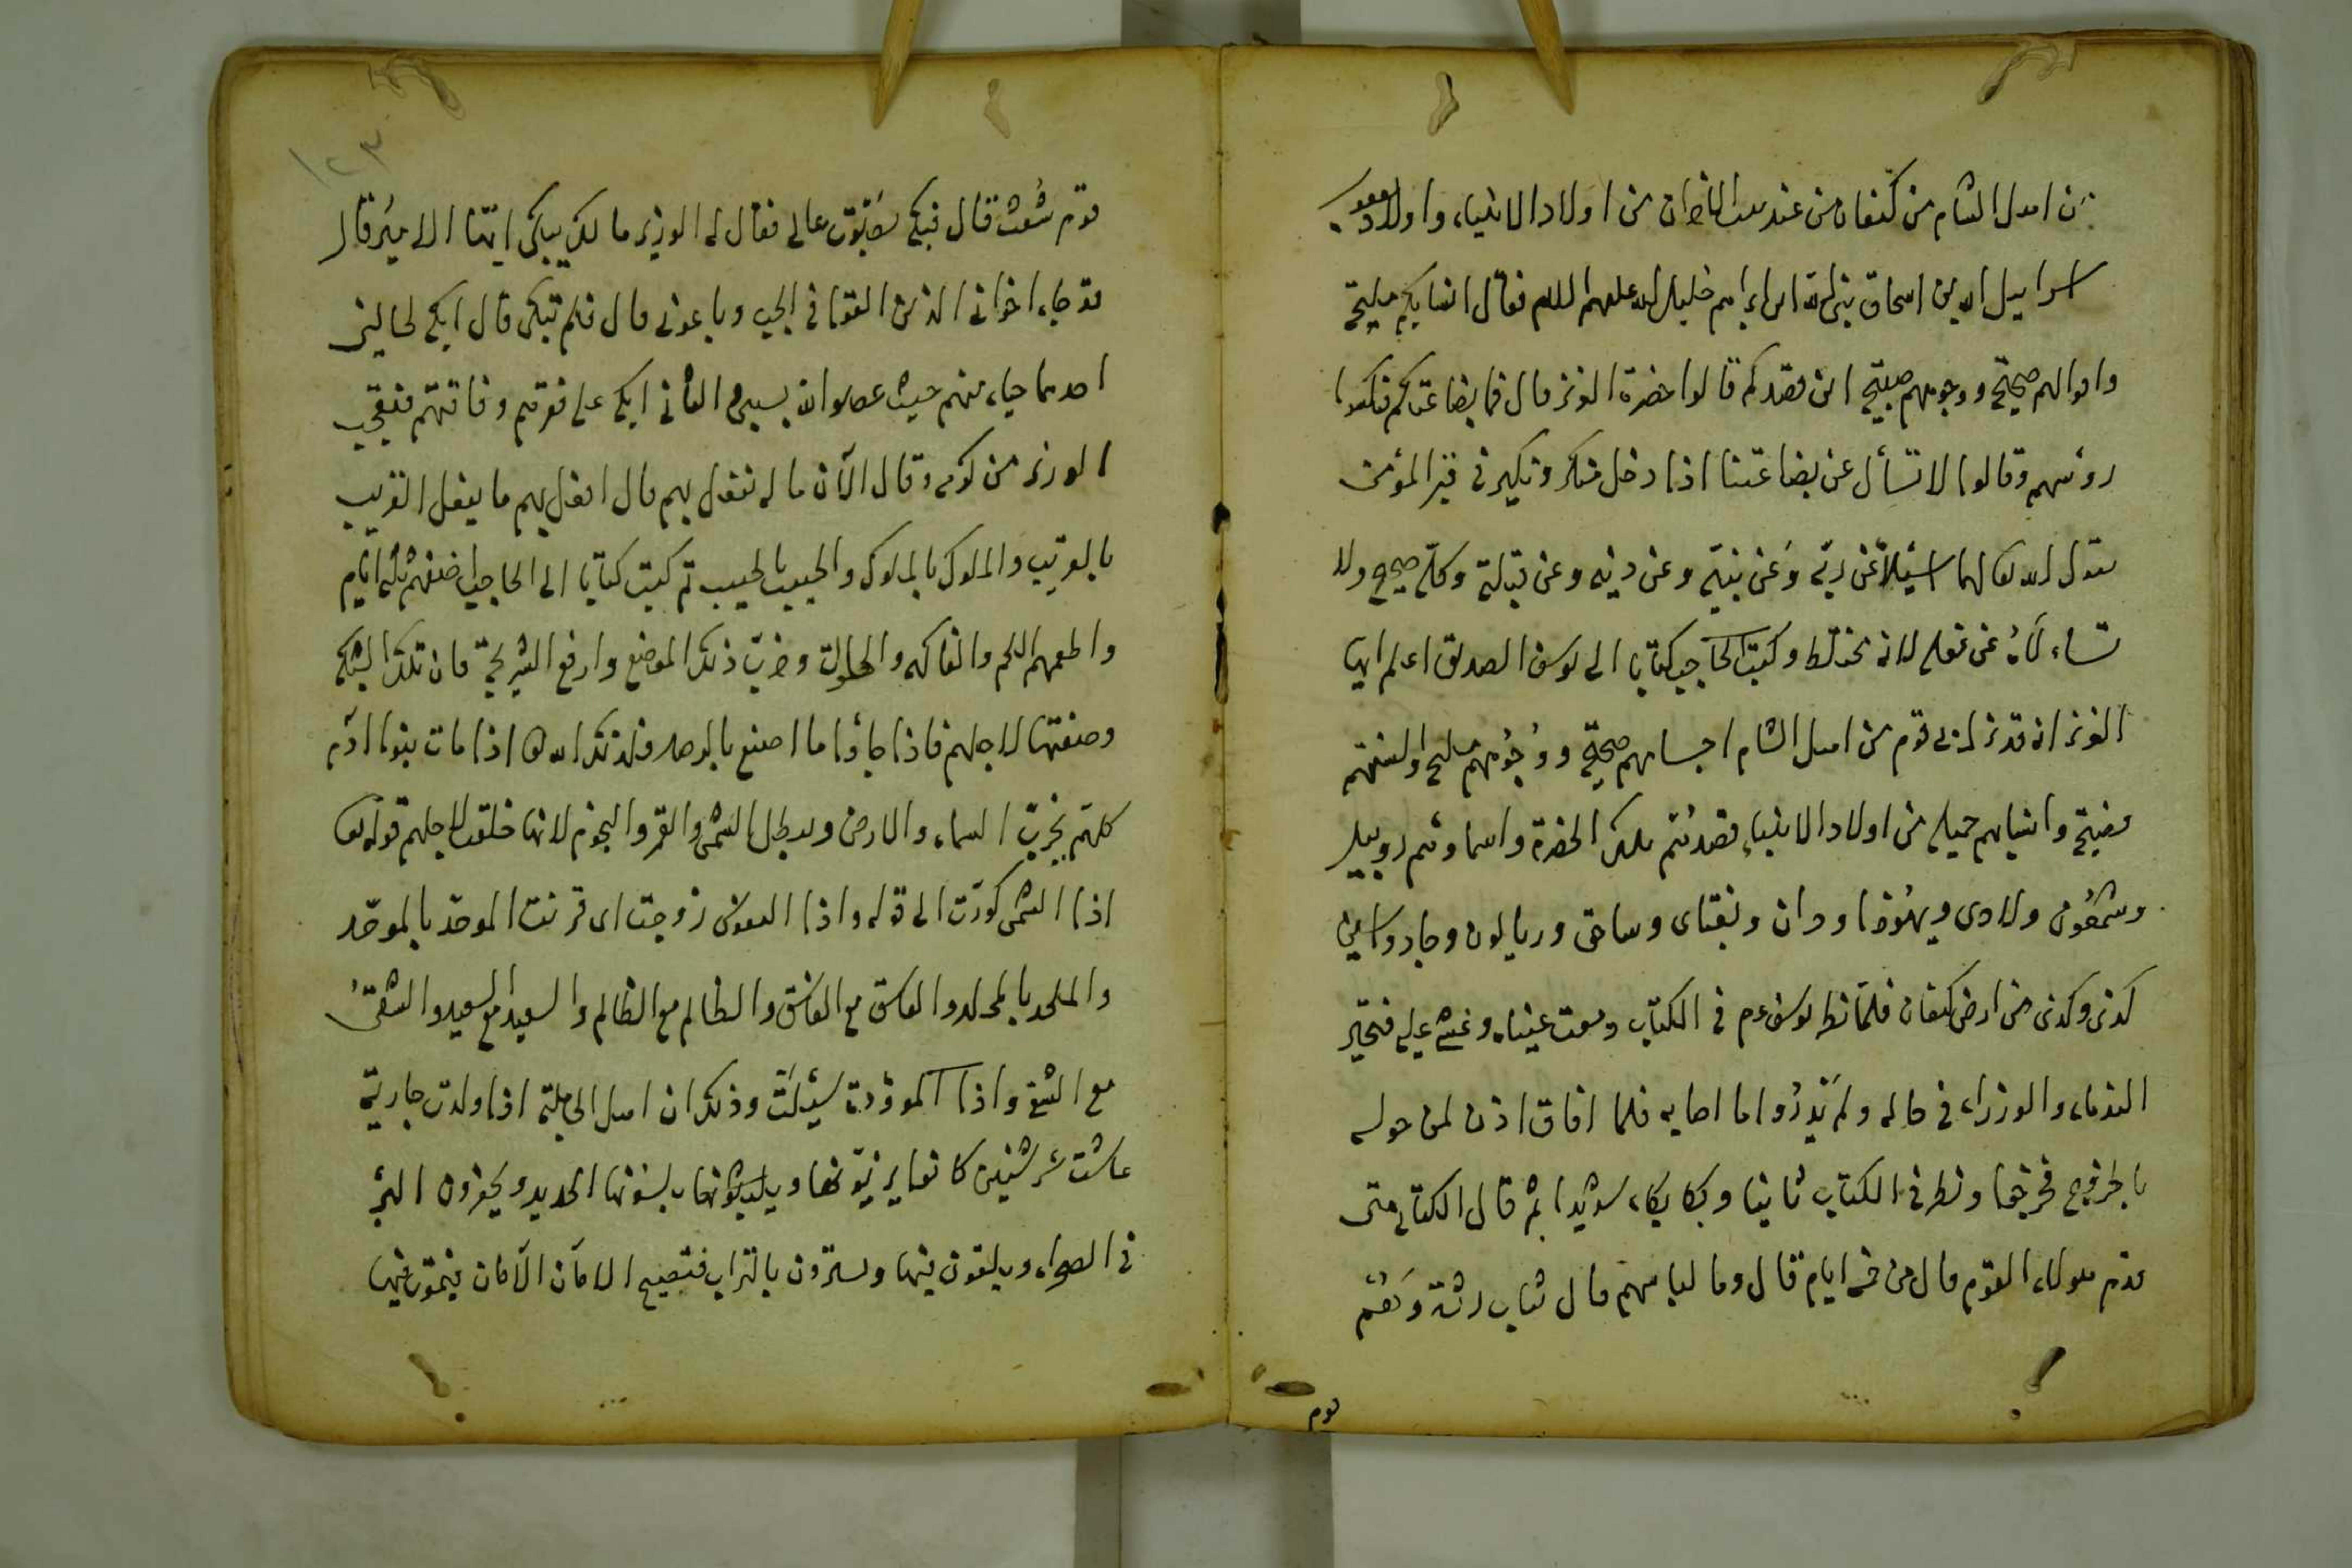 من اهل الشام من كنعان من عند بيت الاحزان من اولاد الانبياء واولاد يعقوب
اسرائيل الله بن اسحاق بن ابراهيم خليل الله عليهم السلم فقال انسابكم مليحة
واحوالهم صحيحة ووجوههم صبيحة اين قصدكم قالوا حضرة العزيز قال فما بضاعتكم فنكسوا
رؤسهم وقالوا لا تسأل عن بضاعتنا اذا دخل منكر ونكير في قبر المؤمن
يقول الله تعالى لهما اسئلا عن ربه وعن نبيه وعن دينه وعن قبلته وكله صحيح ولا
تسألاه عن فعله لانه مختلط وكتب الحاجب كتابا الى يوسف الصديق اعلم ايها
العزيز انه قد نزل بى قوم من اهل الشام اجسامهم صحيحة ووجوههم مليحة والسنتهم
فصيحة وانسابهم جميلة من اولاد الانبياء قصدتهم تلك الحضرة واسماؤهم روبيل
وشمعون ولاوى ويهوذا ودان ونفتاى وساحر وريالون وجاد واسين
كذى وكذى من ارض كنعان فلما نظر يوسف ءم في الكتاب دمعت عيناه وغشى عليه فتحير
الندماء والوزراء في حاله ولم يدروا ما اصابه فلما افاق اذن لمن حوله
بالخروج فخرجوا ونظر في الكتاب ثانيا وبكا بكاء شديدا ثم قال الكتاب متى
قدم هولاء القوم قال من خمسة ايام قال وما لباسهم قال ثياب رثة وهم
قوم
١٢٣
قوم شعث قال فبكى بصوت عالى فقال له الوزير ما لك يبكى ايها الامير قال
قد جاء اخوانى الذين القونى في الجب وباعونى قال فلم تبكى قال ابكى لحالين
احدهما حياء منهم حيث عصوا الله بسببى والثانى ابكى على فقرهم وفاقتهم فتعجب
الوزير من كرمه وقال الآن ما له تفعل بهم قال افعل بهم ما يفعل القريب
بالقريب والملوك بالملوك والحبيب بالحبيب ثم كتب كتابا الى الحاجب اضفهم ثلثة ايام
واطعمهم اللحم والفاكهه والحلوات وخرب ذلك الموضع وارفع الشريحة فان تلك الشبكة
وضعتها لاجلهم فاذا جاؤا ما اصنع بالرصد وكذلك الله تعالى اذا مات بنوا آدم
كلهم يخرب السماء والارض ويبطل الشمس والقمر والنجوم لانها خلقت لاجلهم قوله تعا
اذا الشمس كورت الى قوله واذا النفوس زوجت اى قرنت الموحد بالموحد
والملحد بالملحد والفاسق مع الفاسق والظالم مع الظالم والسعيد مع السعيد والشقى
مع الشقى واذا الموؤدة سئلت وذلك ان اهل الجاهلية اذا ولدت جارية
عاشت عشر سنين كانوا يزينونها ويلبسونها الحديد ويحفرون البئر
في الصحراء ويلقون فيها ويسترون بالتراب فتصيح الامان الآمان فيموت فيها